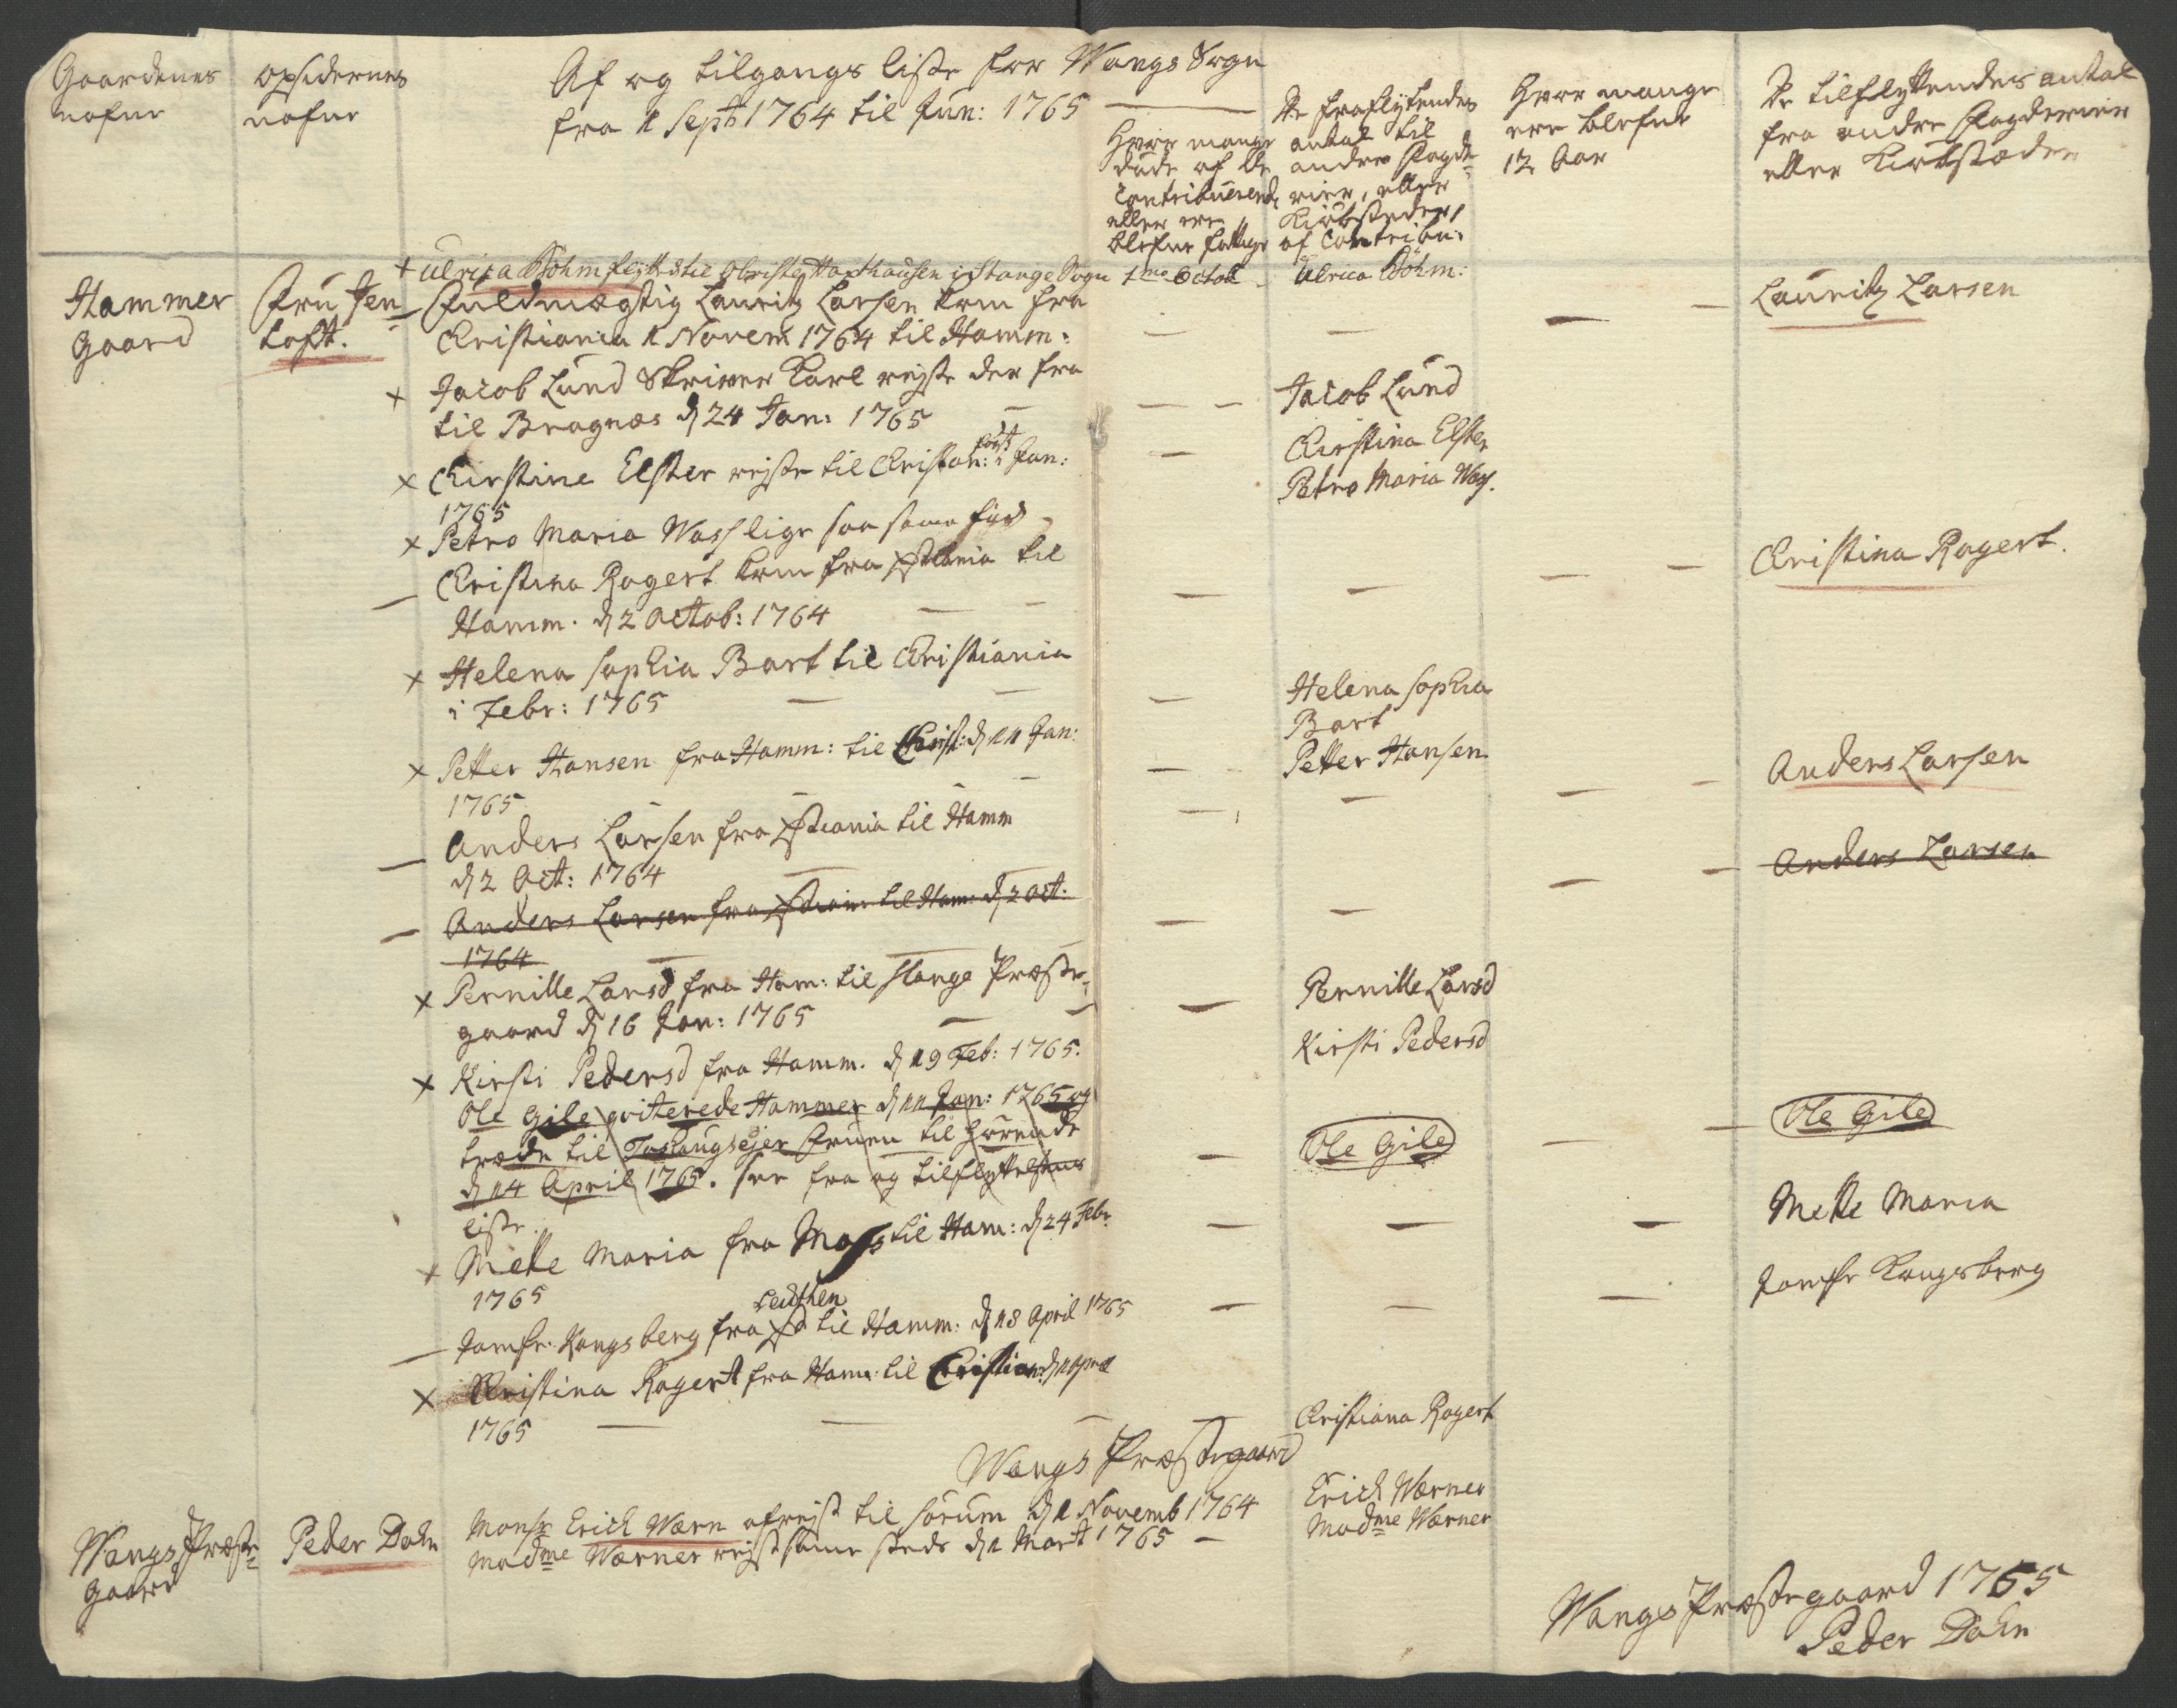 Gaardenes
nafne
opsidernes
nafne
Af og tilgangs liste for Wangs Sogn
fra 1 Sept: 1764 til Jun: 1765
Hvor mange
døde af de
Contribuerend,
eller ere
blefne fattige
De fraflÿtendes
antal til
andre Fogde-
rier, eller
Kiøbsteder,
af Contribu:
Hvor mange
ere blefne
12 Aar
De tilflyttendes antal
fra andre Fogderier
eller Kiøbstæder
Hammer
Gaard
Fru Jen
Toft.
+ Ulrica Bøhm flÿtte til Obriste Haxthausen i Stange Sogn 1me Octob -
Ulrica Bøhm:
— Fuldmægtig Lauritz Larsen kom fra
Christiania 1 Novem 1764 til Hamm:
Lauritz Larsen
x Jacob Lund Skriver Karl rejste der fra
til Bragnæs d 24 Jan: 1765
Jacob Lund
x Chirstine Elster rejste til Christan: i Jan:
1765
Chirstina Elster
x Petro Maria Wass lige saa samme tid
Petro Maria Was.
— Christina Rogert kom fra Xstiania til
Hamm. d 2 Octob: 1764
Christina Rogert.
x Helena Sophia Bart til Christiania
i Febr: 1765
Helena Sophia
Bart
x Petter Hansen fra Hamm: til Christ: d 11 Jan:
1765
Petter Hansen
— Anders Larsen fra Xstiania til Hamm
d 2 Oct: 1764
Anders Larsen
— Anders Larsen fra Xstiania til Ham: d 2 Oct:
1764
Anders Larsen
x Pernille Larsd fra Ham: til Stange Præste-
gaard d 16 Jan: 1765
Pernille Larsd
x Kirsti Pedersd fra Hamm. d 19 Feb: 1765.
Kirsti Pedersd
Ole Gile qviterede Hammer d 11 Jan: 1765 og
træde til Fruen til hørende
d 14 April 1765. See fra og tilflyttelsens
liste.
Ole Gile
Ole Gile
x Mette Maria fra Moss til Ham: d 24 Febr
1765
Mette Maria
Leuthen
— Jomfr. Kongsberg fra til Hamm: d 18 April 1765
Jomfr Kongsberg
x Christina Rogert fra Hamm: til Christian: d 1 April
1765
Christiana Rogert
Wangs Præstegaard
Wangs Præste-
Gaard
Peder Dahn
Monsr Erich Wærn afrejst til Sørum d 1 Novemb 1764
Madme Wærner rejst samme steds d 1 Mart 1765 —
Erich Wærner
Madme Wærner
Wangs Præstegaard 1765
Peder Dahn